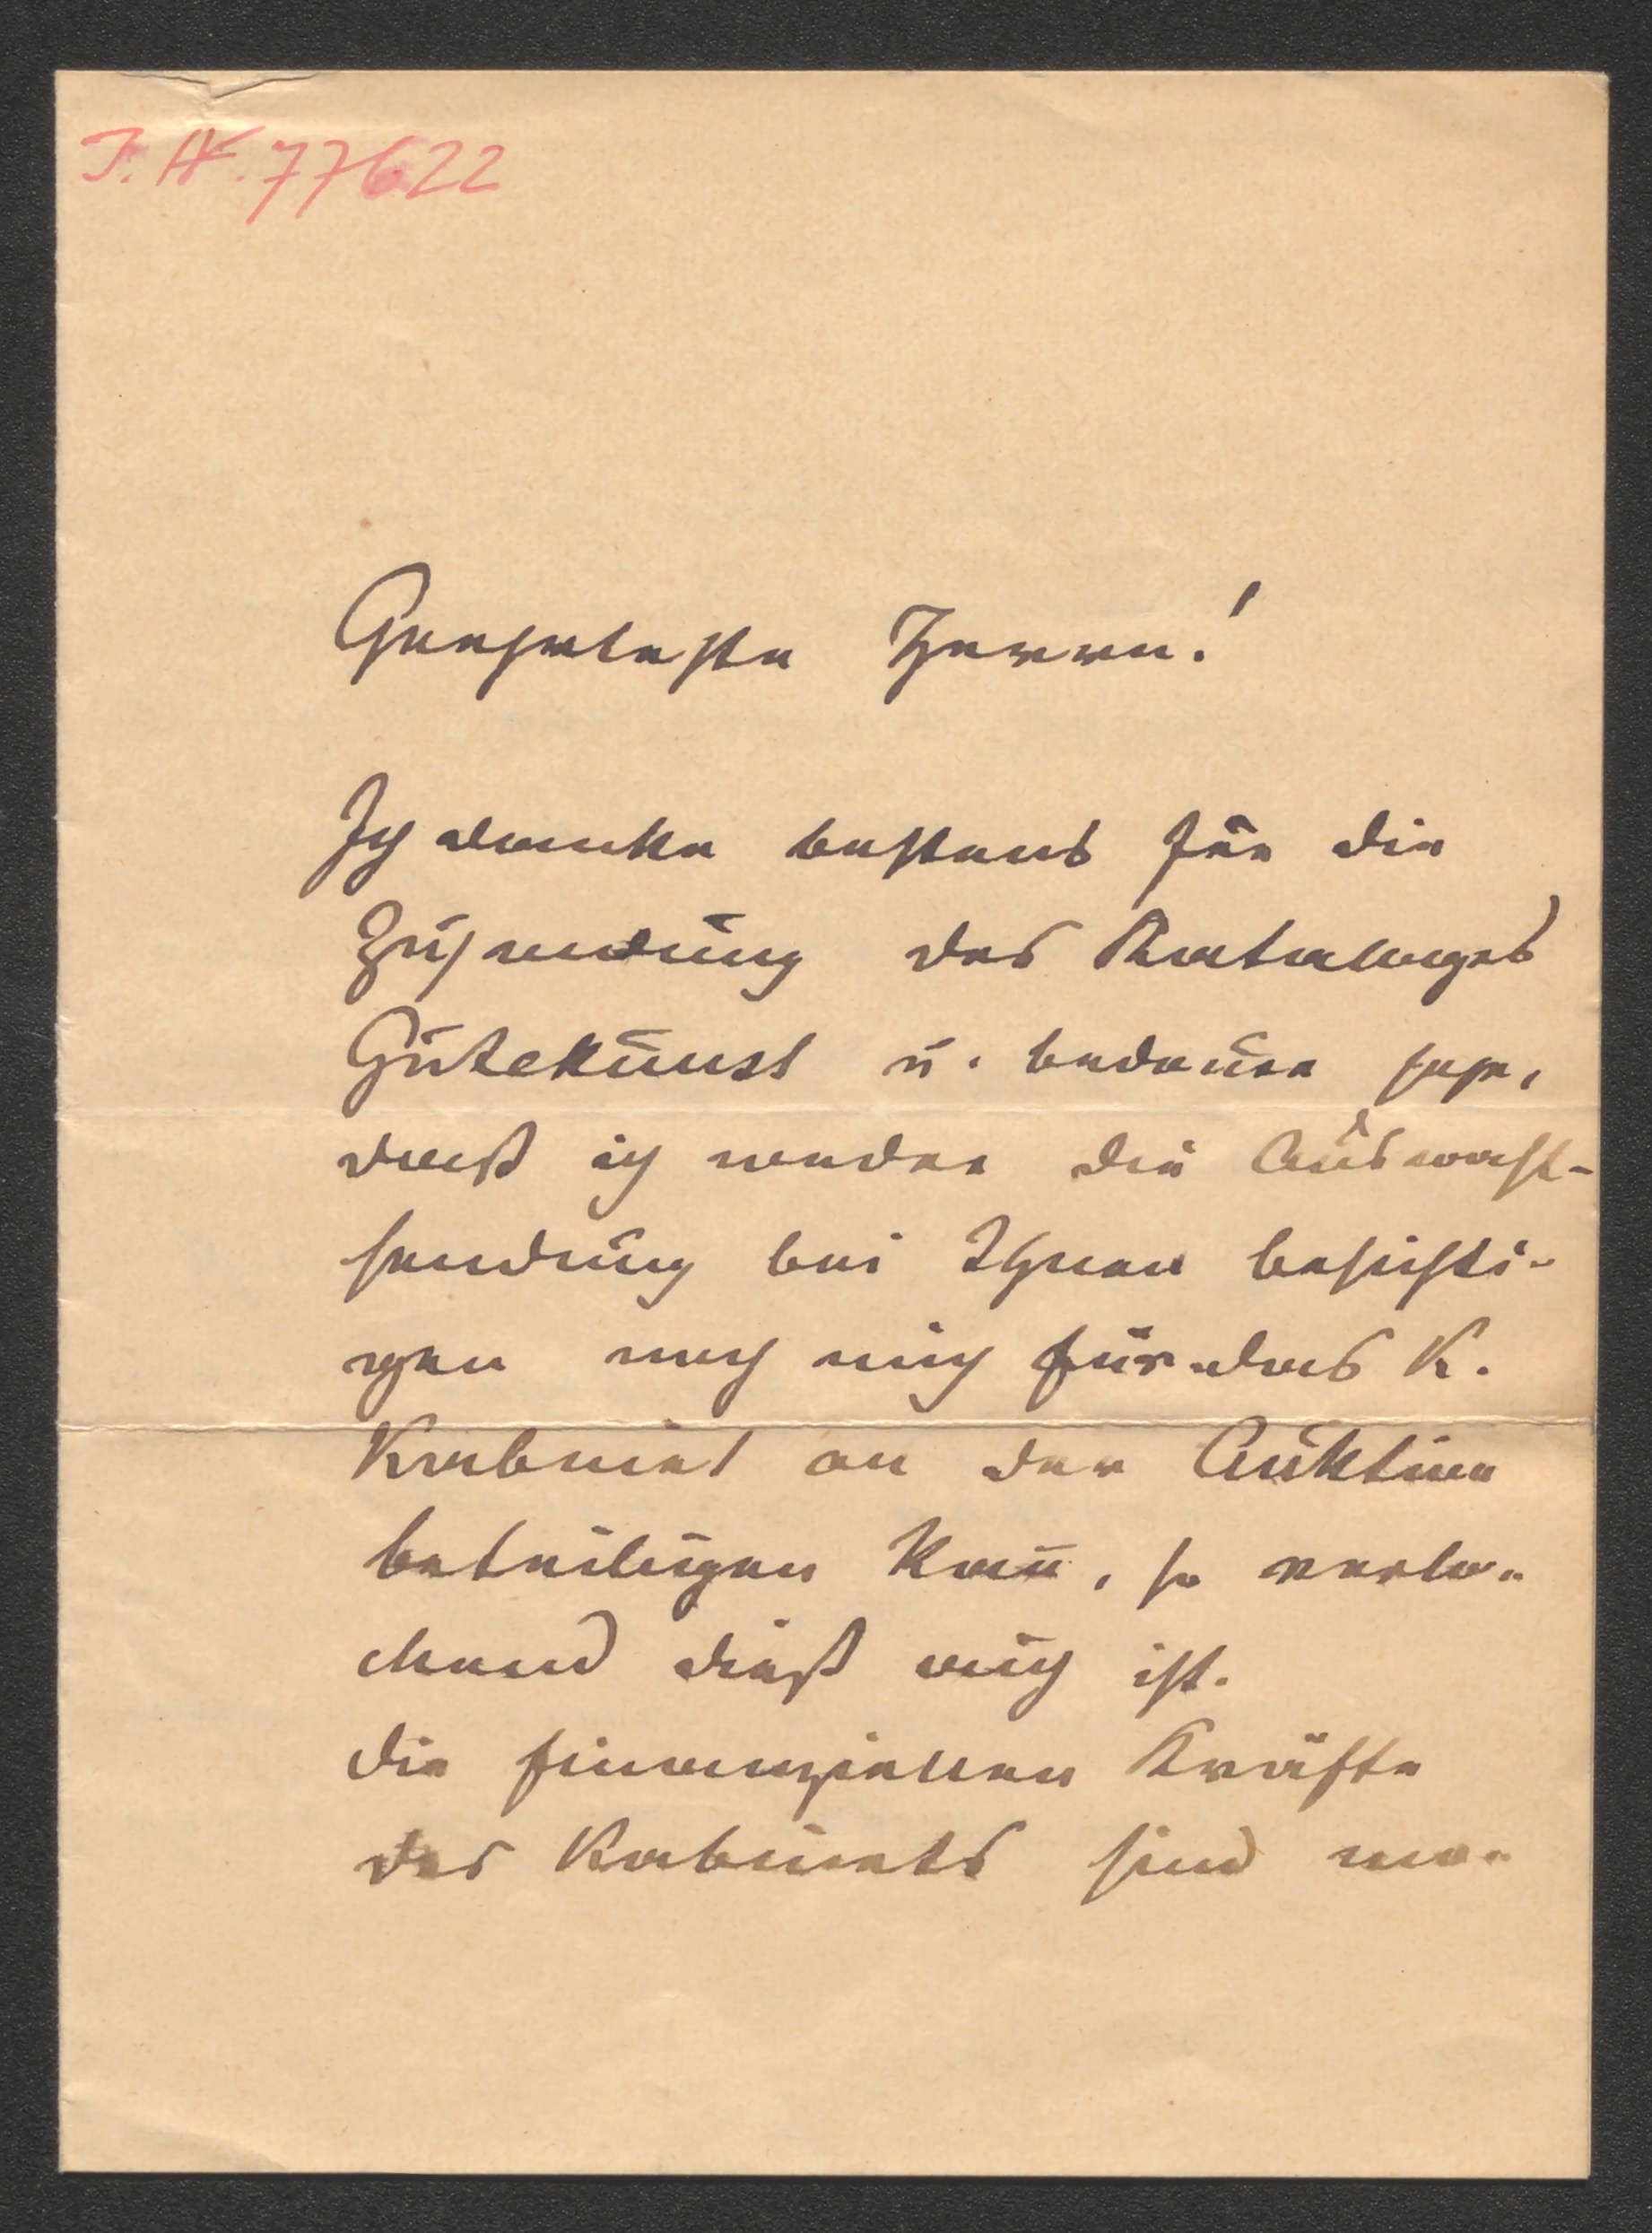 I. N. 77622
Geehrteste Herren!
Ich danke bestens für die
Zusendung des Kataloges
Gutekunst u. bedaure sehr,
daß ich weder die Auswahl-
sendung bei Ihnen besichti-
gen noch mich für das K.
Kabinet an der Auktion
beteiligen kann, so verlo-
ckend dieß auch ist.
Die finanziellen Kräfte
des Kabinets sind mo-